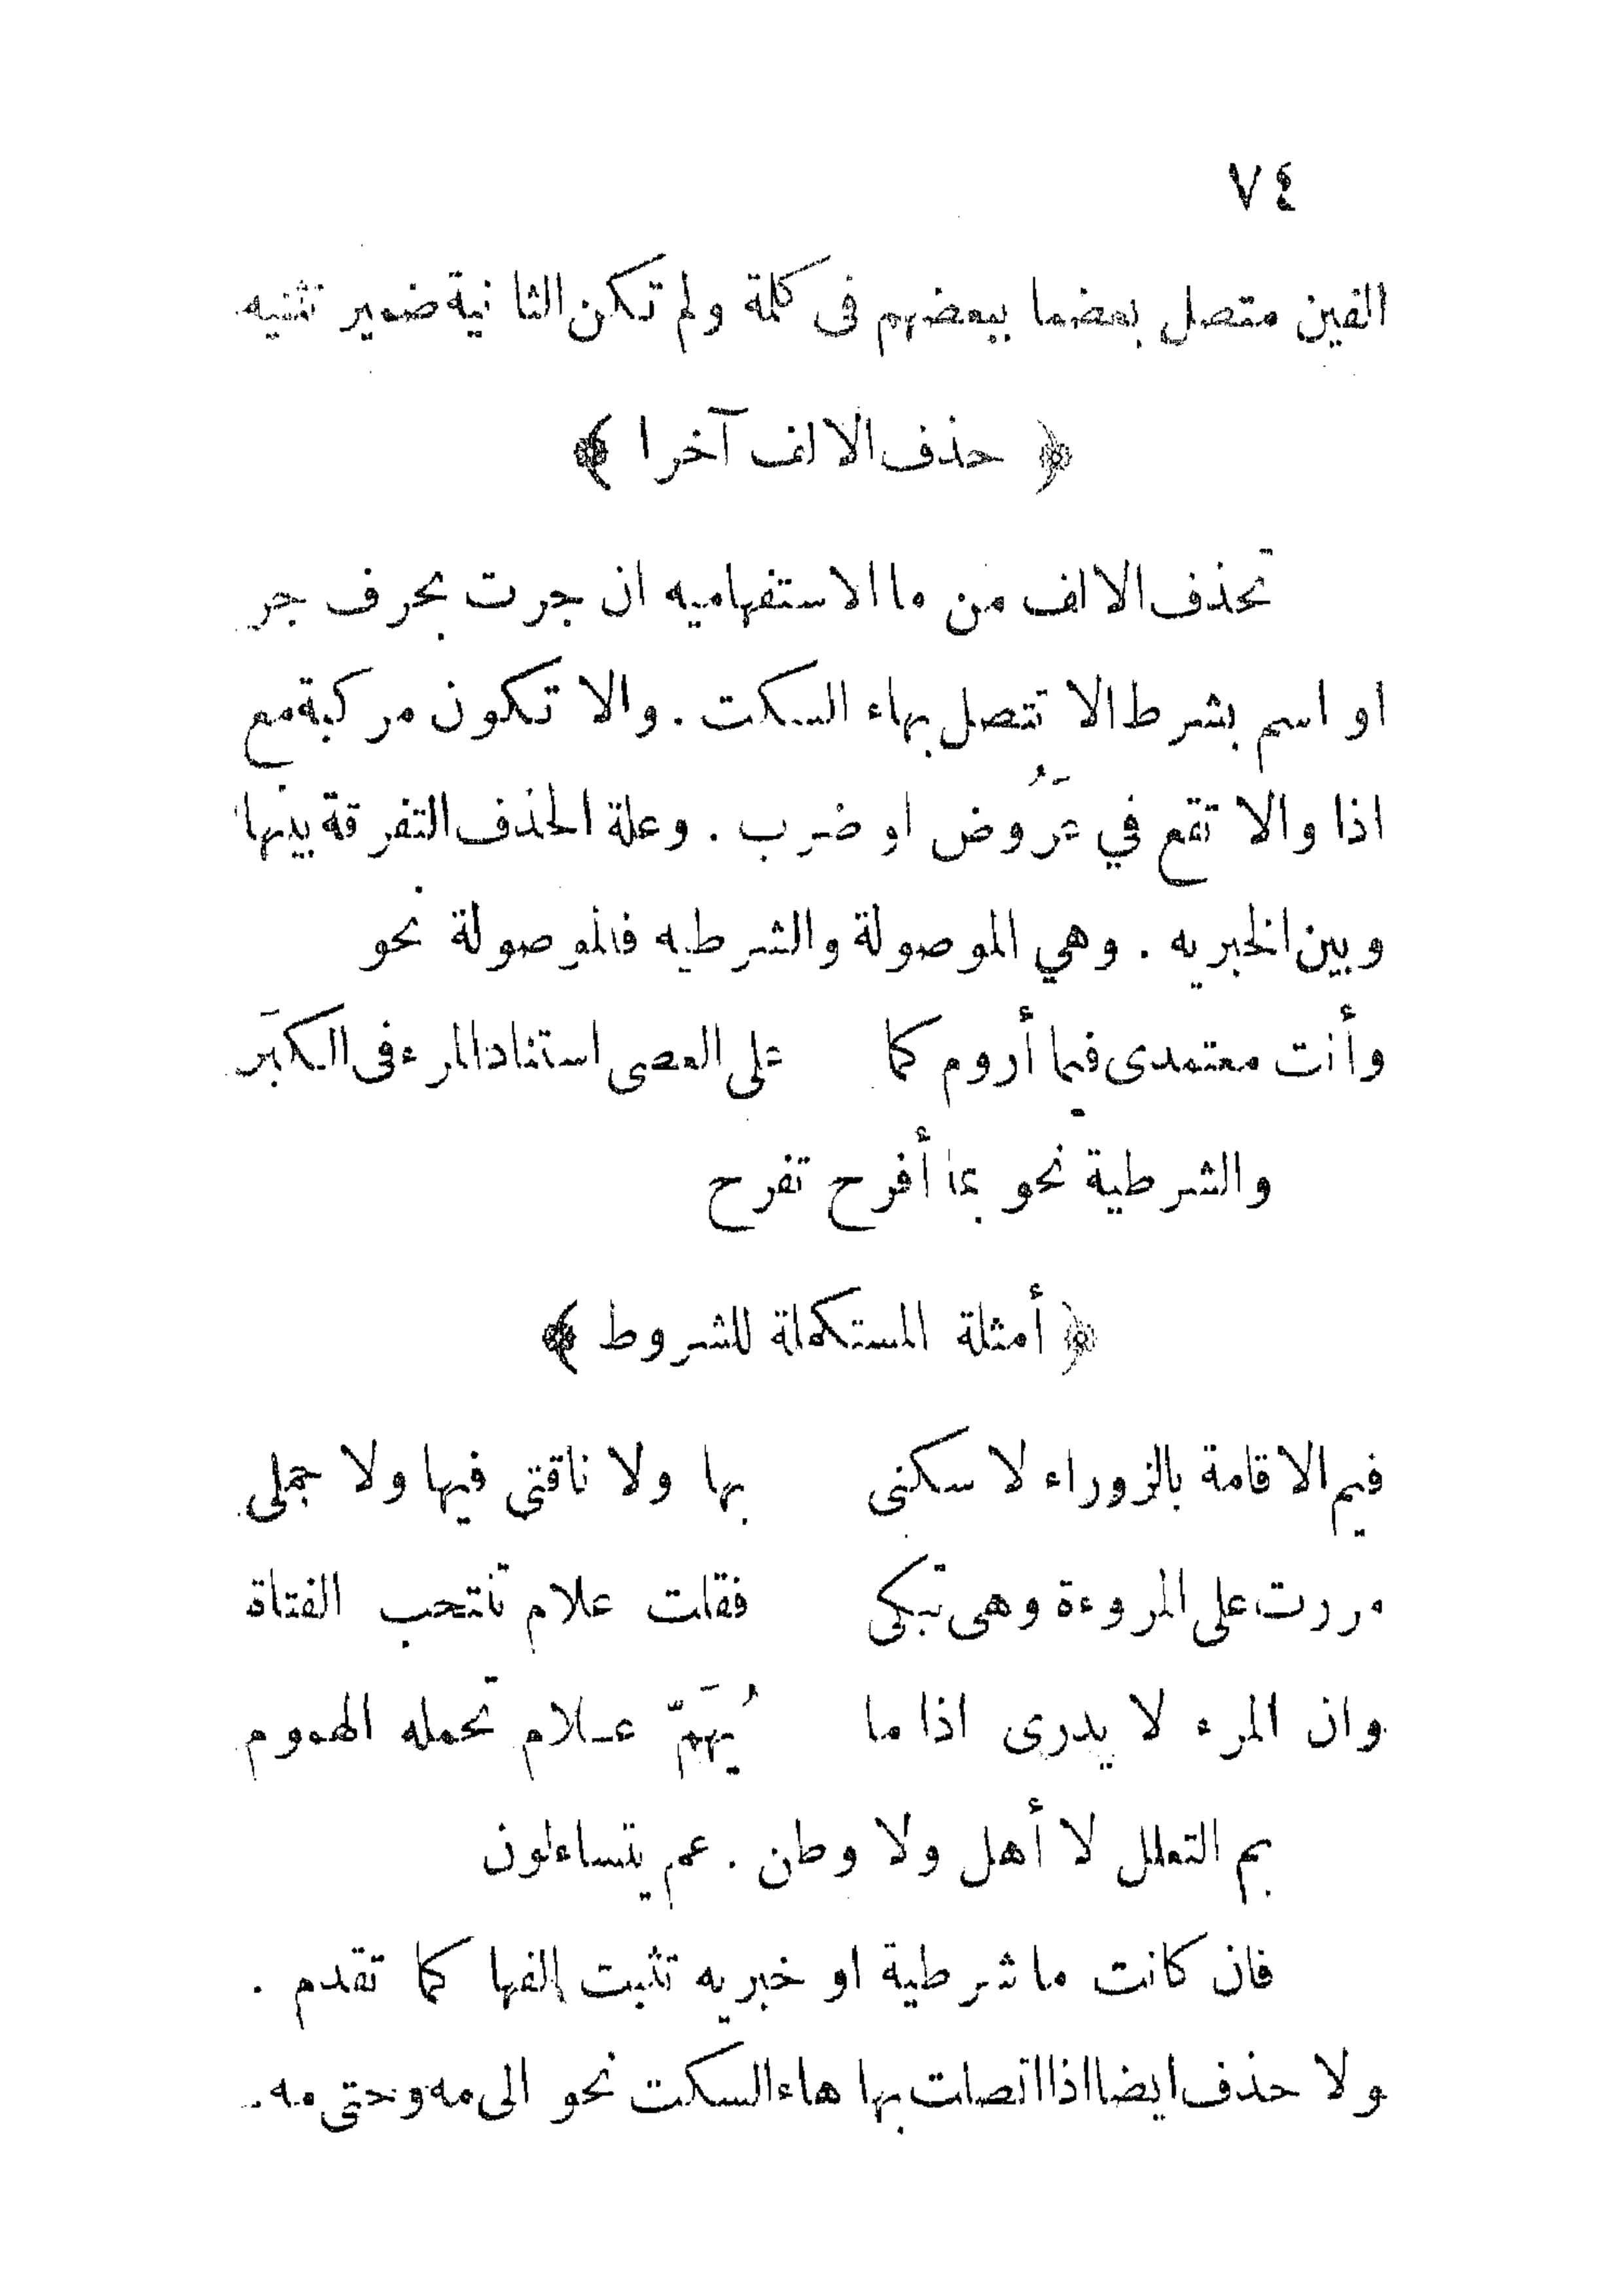 ٧٤
الفين متصل بعضها ببعضهم فى كلمة ولم تكن الثانية ضمير تثنيه
﴿ حذف الالف آخرا ﴾
تحذف الالف من ما الاستفهاميه ان جرت بحرف جر
او اسم بشرط الا تتصل بهاء السكت . والا تكون مركبة مع
اذا والا تقع في عَرُوض او ضرب . وعلة الحذف التفرقة بينها
وبين الخبريه . وهي الموصولة والشرطيه فالموصولة نحو
وأنت معتمدى فيما أروم كما على العصى استناد المرء فى الكبَر
والشرطية نحو بما أفرح تفرح
﴿ أمثلة المستكملة للشروط ﴾
فيم الاقامة بالزوراء لا سكنى بها ولا ناقتى فيها ولا جملى
مررت على المروءة وهى تبكى فقلت علام تنتحب الفتاة
وان المرء لا يدرى اذا ما يُهَمّ علام تحمله الهموم
بم التعلل لا أهل ولا وطن . عم يتساءلون
فان كانت ما شرطية او خبريه تثبت الفها كما تقدم .
ولا حذف ايضا اذا اتصلت بها هاء السكت نحو الى مه وحتى مه .